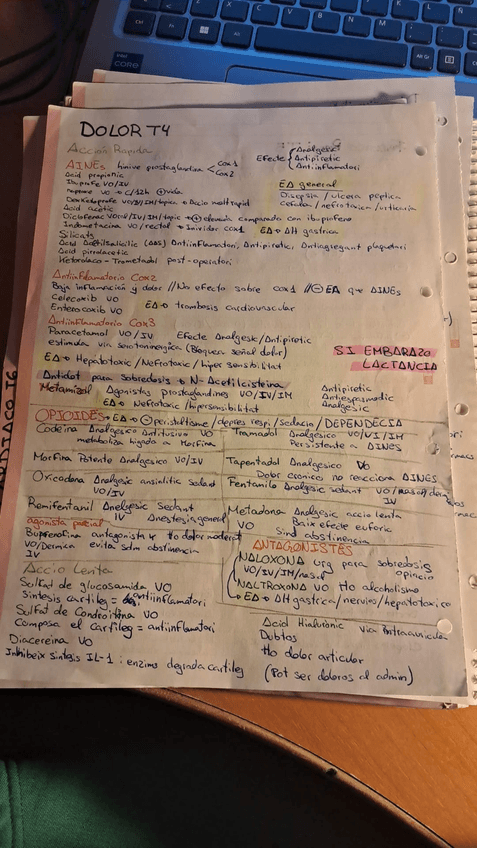 DOLOR T4
Acción Rápida
AINEs Inhive prostaglandina < Cox1 Cox2
Efecte { Analgesic Antipiretic Antiinflamatori
Acid propionic
Ibuprofe VO/IV
Naproxe VO → c/12h
Dexketoprofe VO/IV/IM/topic → Accio molt rapid
ED general
Dispepsia / ulcera peptica
Cefalea / nefrotoxica / urticaria
Acid acetic
Diclofenac VO/IV/IM/topic → ⊕ elevada comparado con ibuprofeno
Indometacina VO/rectal → Inhividor cox1 ED → ΔH gastrica
Silicats
Acid Acetilsalicilic (AAS) Antiinflamatori, Antipiretic, Antiagregant plaquetari
Acid pirrolacetic
Ketorolaco - Trometadol post-operatori
Antiinflamatorio Cox2
Baja inflamación y dolor // No efecto sobre cox1 // ⊖ EA que AINEs
Celecoxib VO
Enterocoxib VO
ED → trombosis cardiovascular
Antiinflamatorio Cox3
Paracetamol VO/IV Efecte Analgesic/Antipiretic
estimula via serotoninergica (Bloquea señal dolor)
ED → Hepatotoxic/Nefrotoxic/hipersensibilitat
SI EMBARAZO
LACTANCIA
Antidot para sobredosis → N-Acetilcisteina
Metamizol Agonistas prostaglandines VO/IV/IM
ED → Nefrotoxic/hipersensibilitat
Antipiretic
Antiespasmodic
Analgesic
OPIOIDES → ED → ⊖ peristaltisme / depres respi / sedacio / DEPENDECIA
Codeina Analgesico Antitusivo VO
metaboliza higado a Morfina
Tramadol Analgesico VO/IV/IM
Persistente a AINES
Morfina Potente Analgesico VO/IV
Tapentadol Analgesico VO
Dolor cronico no reacciona AINES
Oxicodona Analgesic ansiolitic sedant
VO/IV
Fentanilo Analgesic sedant VO/nasal/dermic
IV
Remifentanil Analgesic Sedant
IV Anestesia general
Metadona Analgesic accio lenta
VO Baix efecte euforic
Sind abstinencia
agonista parcial
Buprenofina antagonista k tto dolor moderat
VO/Dermica evita sdm abstinencia
IV
ANTAGONISTES
NALOXONA urg para sobredosis
VO/IV/IM/nasal opiacio
NALTROXONA VO tto alcoholismo
→ ED → ΔH gastrica/nervios/hepatotoxico
Accio Lenta
Sulfat de glucosamida VO
Sintesis cartileg = antiinflamatori
Sulfat de Condroitina VO
Composa el Cartileg = antiinflamatori
Diacereina VO
Inhibeix sintesis IL-1 : enzims degrada cartileg
Acid Hialuronic via intraarticular
Dubtos
tto dolor articular
(Pot ser doloros al admin)